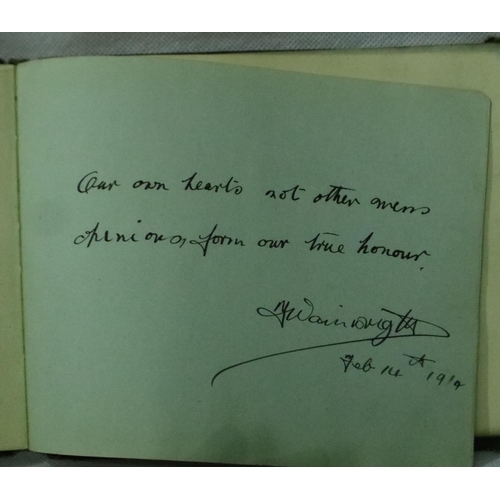 Our own hearts not other mens
opinions, form our true honour.
Wainwright
Feb 14th 1914